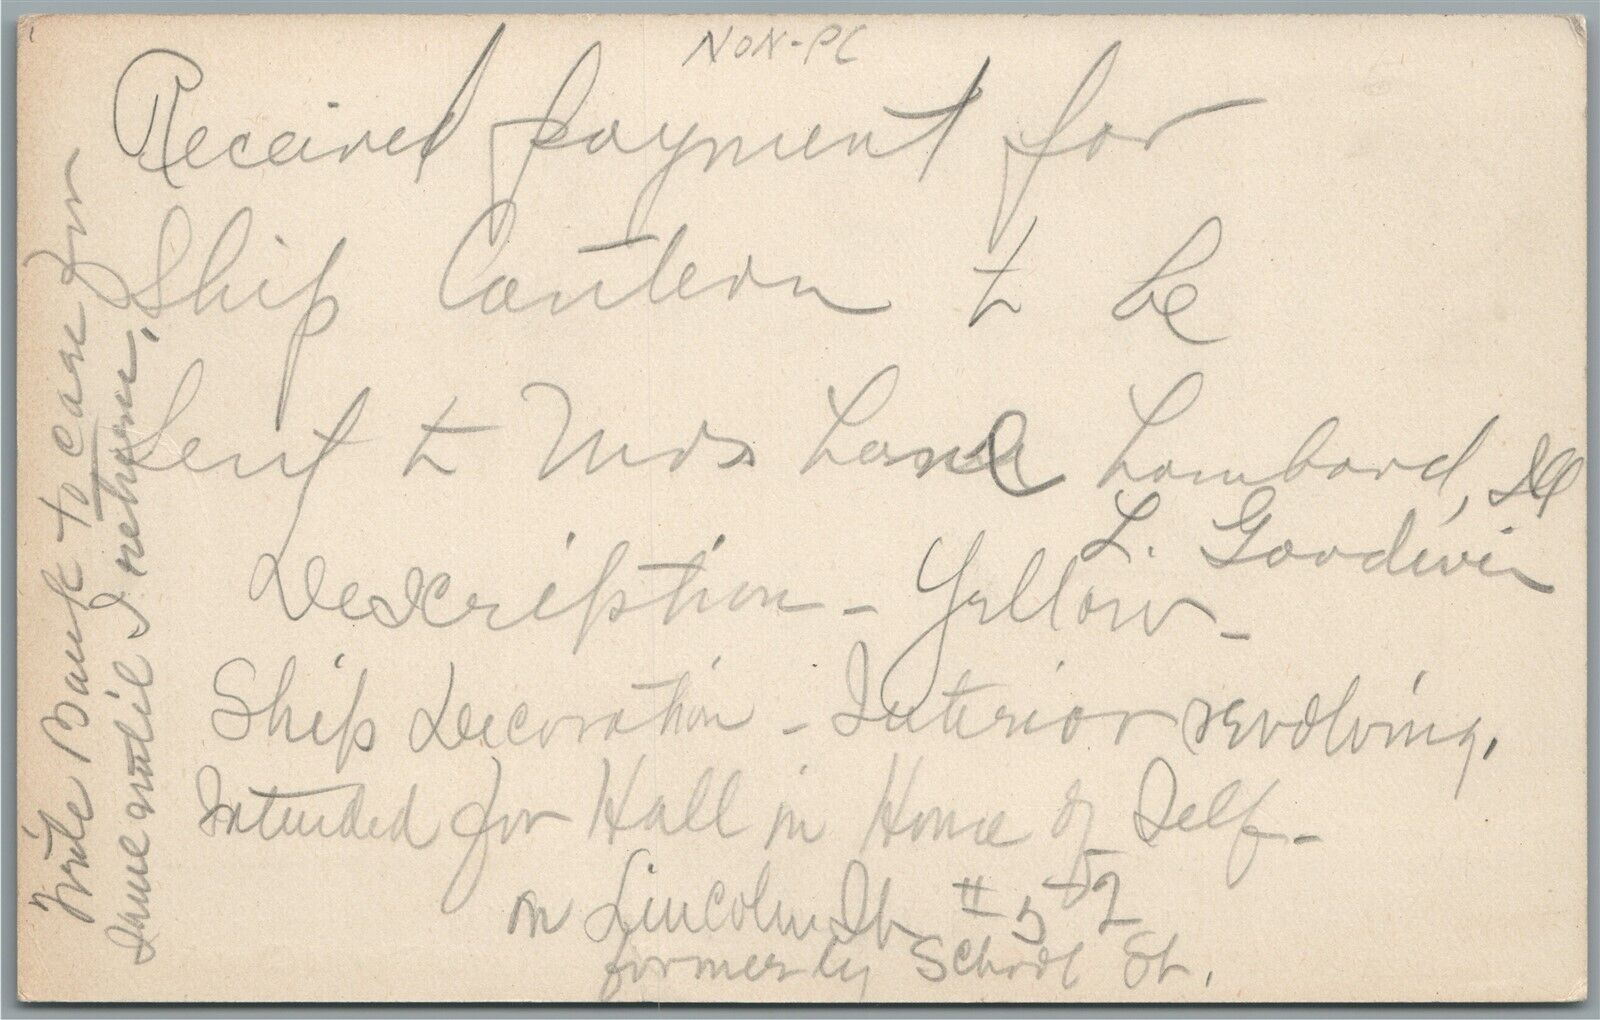 NON-PC
Received payment for
Ship Lantern to be
Sent to Mrs Lane Lombard, Ill
L. Goodwin
Description - Yellow -
Ship Decoration - Interior revolving.
Intended for Hall in Home of Self -
on Lincoln St. # 552
formerly School St.
Write Bank to care for
same until I return.